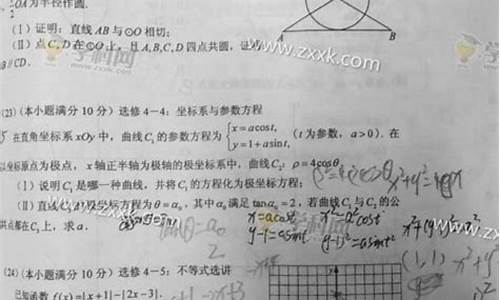 OA为半径作圆.
(I) 证明: 直线 AB 与⊙O 相切;
(II) 点 C, D 在⊙O 上, 且 A,B,C,D 四点共圆, 证
B∥CD.
A
B
www.zxxk.com
学科网
(23) (本小题满分 10 分) 选修 4－4: 坐标系与参数方程
在直角坐标系 xOy 中, 曲线 C₁ 的参数方程为 { x=acost, y=1+asint, (t 为参数, a>0). 在
以坐标原点为极点, x 轴正半轴为极轴的极坐标系中, 曲线 C₂: ρ=4cosθ.
(I) 说明 C₁ 是哪一种曲线, 并将 C₁ 的方程化为极坐标方程;
(II) 直线 C₃ 的极坐标方程为 θ=α₀, 其中 α₀ 满足 tanα₀=2, 若曲线 C₁ 与 C₂ 的公
共点都在 C₃ 上, 求 a.
x=acost
y-1=asint
(1, 1)
(24) (本小题满分 10 分) 选修 4－5: 不等式选讲
已知函数 f(x)=|x+1|-|2x-3|.
www.zxxk.com